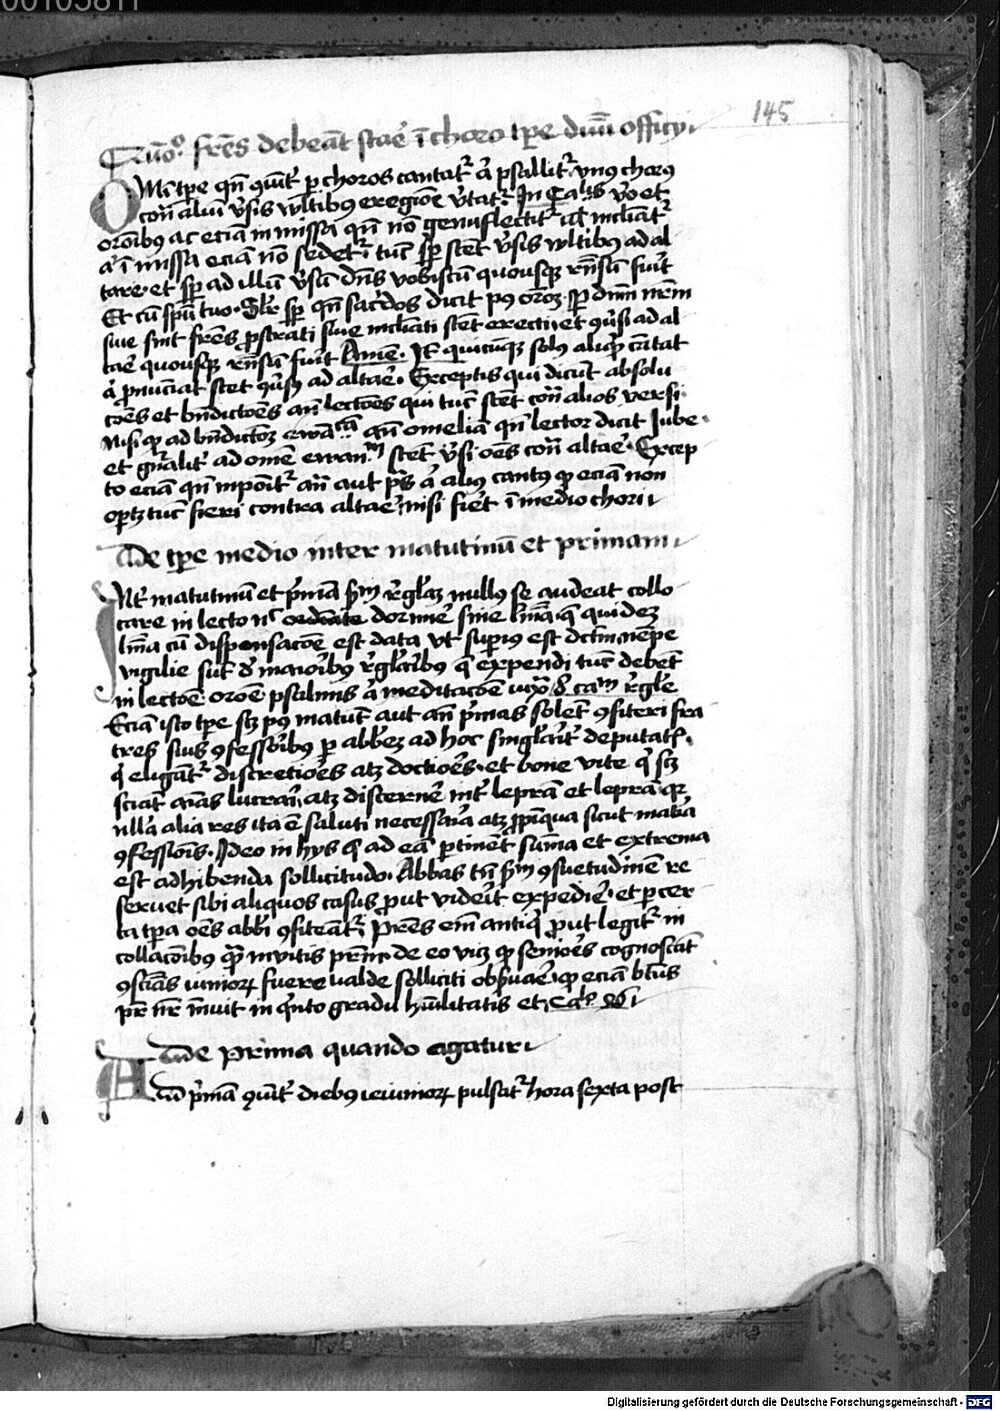 00105811
145
Quō frēs debeāt stāe ī choro tp̄e diuī officij
Omī tp̄e qn̄ 9uēt' p choros cantat' a' psallit' vnus chorus
con̄ aliū v'sis vultibus e regiōe v'tat'. In Ca v'o et
orōnibus ac eciā in missa qn̄ nō genuflectit' ul' inclīat'
a' ī missa eciā nō sedet' tūc sp̄ stēt v'sis vultibus ad al
tare. et sp̄ ad illū v'sū dn̄s vobiscū quousq; rn̄sū fuīt
Et cū spū tuo. Sl'r sp̄ qn̄ sac'dos dicit p9 orōes. p dn̄m nr̄m
siue sint frēs prostrati siue inclīati stēt erecti et 9u'si ad al
tāe quousq; rn̄sū fuīt Amē. It quicūq; solus aliqd cātat
a' pnūciat stet 9u'sus ad altāe. Exceptis qui dicūt absolu
cōes et bn̄dictōes an̄ lectōes qui tūc stēt con̄ alios versi.
Nisi qd ad bn̄dictōez ewā an̄ omeliā qn̄ lector dicit Iube.
et gn̄alit' ad omē ewan stēt v'si oēs con̄ altāe. Excep
to eciā qn̄ inponit' an̄ aut ps a' alius cantus qd eciā non
oportz tūc fieri contra altāe nisi fiēt ī medio chori
De tp̄e medio inter matutinū et primam
Int' matutinū et p'mā sm̄ r'glaz nullus se audeat collo
care in lecto ordinate dormīe sine lnīa q quidez
lnīa cū dispensacōe est data vt supius est dctm nepe
vigilie sūt d' maioribus r'glaribus q expendi tūc debēt
in lectōe orōe psalmis a' meditacōe iuxa ca r'gle
Eciā isto tp̄e sz p9 matut aut an̄ p'mas solēt 9fiteri fra
tres suis 9fessoribus p abbez ad hoc singlarit' deputat.
q eligāt' discretiōes atz doctiōes. et bone vite q sz
sciāt aias lucrari, atz discernēe int' leprā et leprā qr
nlla alia res ita ē saluti necessaia atz ppiqua sicut matia
9fessiōis. Ideo in hijs q ad eā ptinēt sūma et extrema
est adhibenda sollicitudo. Abbas tn̄ sm̄ 9suetudinē re
seruet sibi aliquos casus put videīt expedīe. et p cer
ta tpa oēs abbi 9fiteāt'. Prēs enī antiq put legit' in
collacōibus invitis prm̄ de eo viz qd seniōes cognoscāt
9sciās iunior fuere valde solliciti obseruāe, qd eciā btūs
pr nr inuit in q'nto gradu hūilitatis et ca
De prima quando agatur
Ad p'mā 9uēt' diebus ieiunior pulsat' hora sexta post
Digitalisierung gefördert durch die Deutsche Forschungsgemeinschaft - DFG